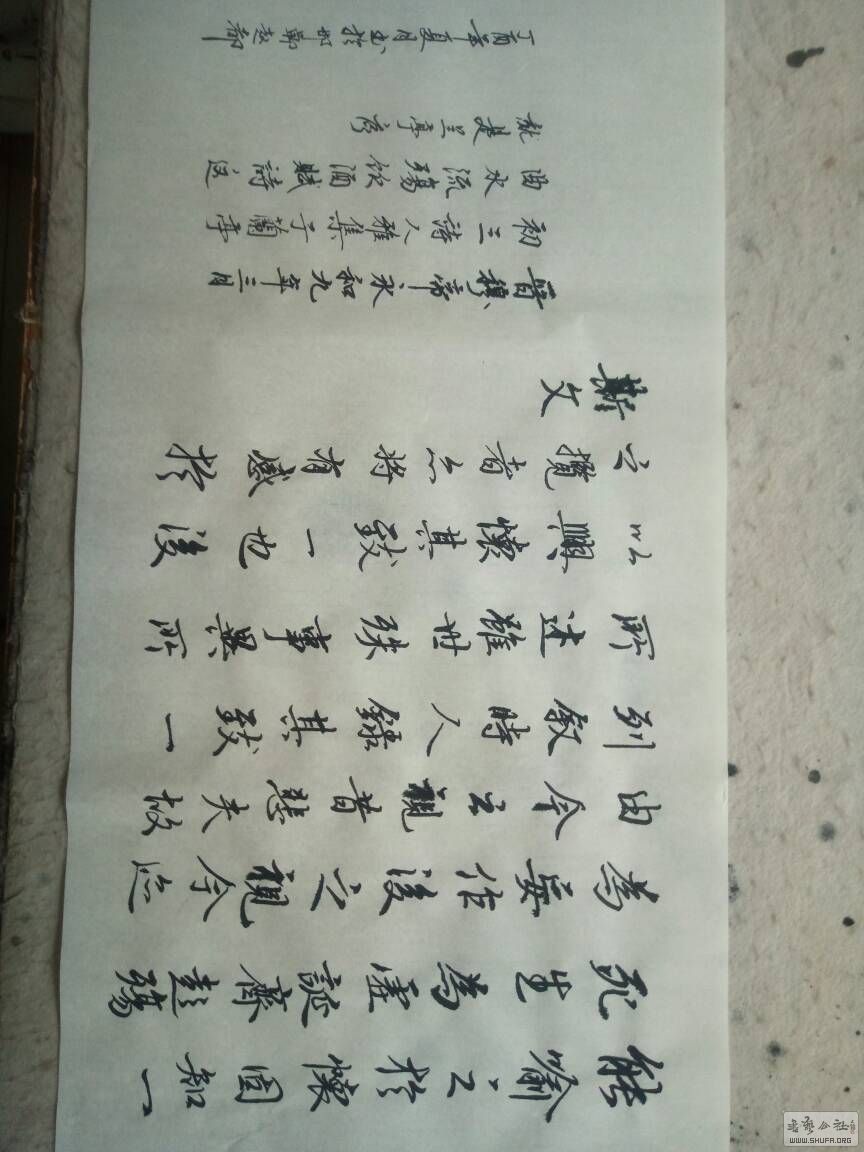 能喻之於懷固知一
死生為虛誕齊彭殤
為妄作後之視今亦
由今之視昔悲夫故
列敘時人錄其致一
所述雖世殊事異所
以興懷其致一也後
之攬者亦將有感於
斯文
晉穆帝永和九年三月
初三詩人雅集于蘭亭
曲水流殤飲酒賦詩這
就是兰亭序
丁酉年夏月书於邯鄲赵都
书艺公社
WWW.SHUFA.ORG